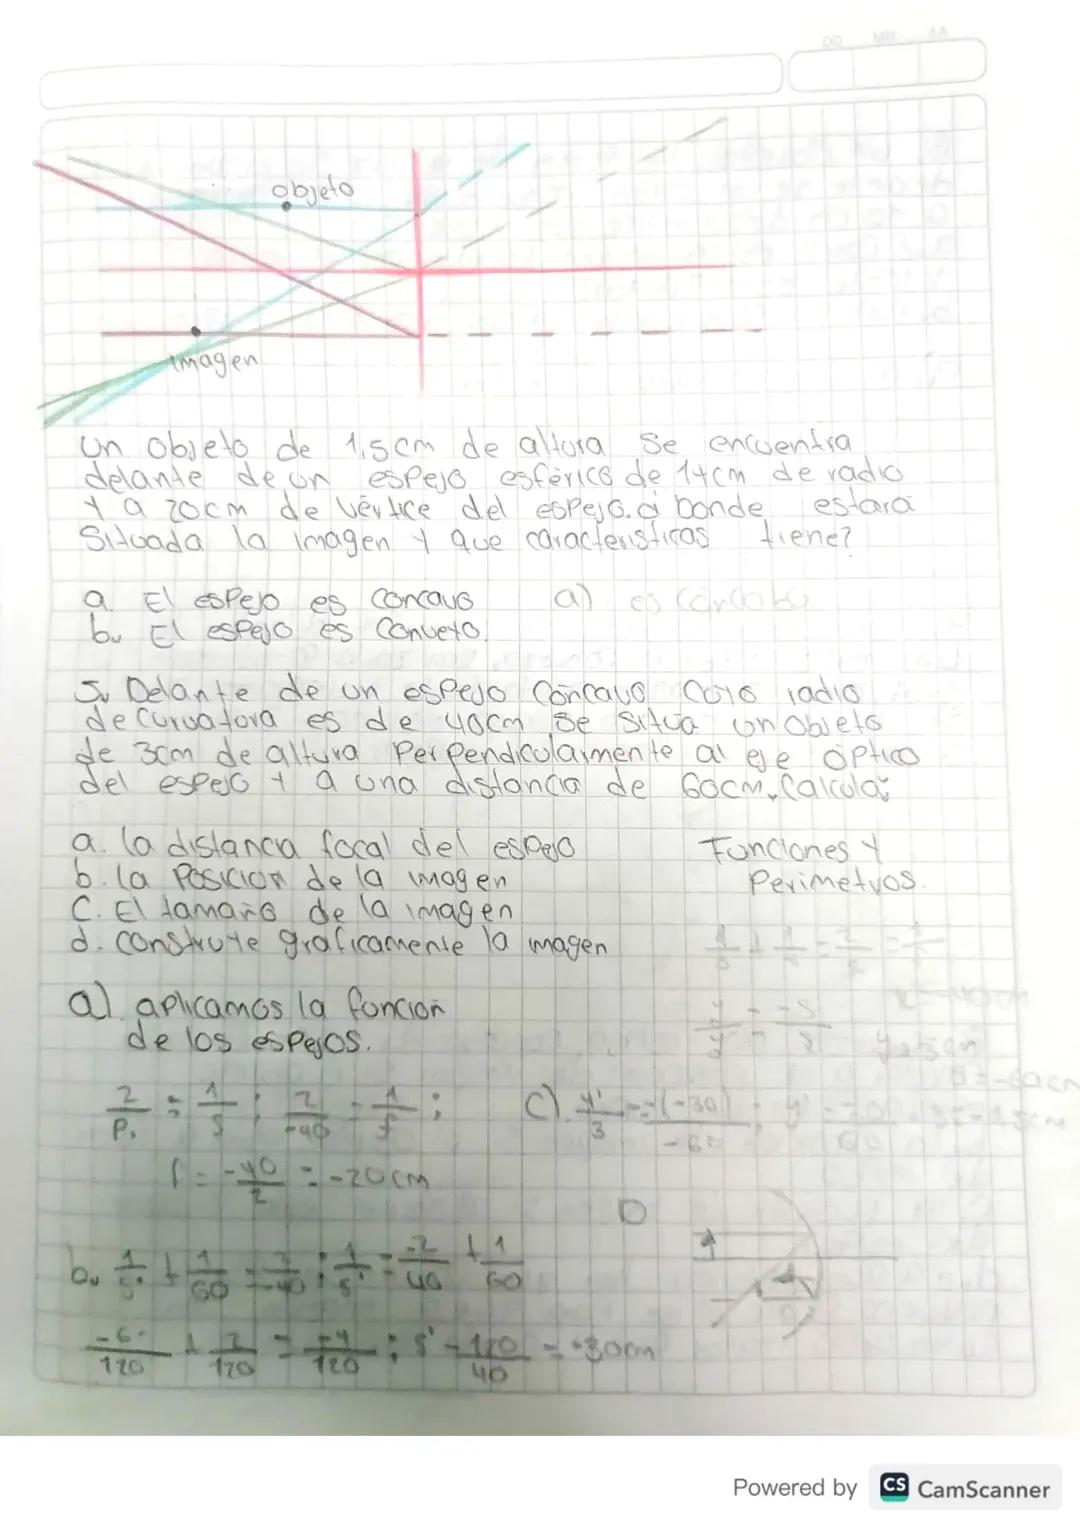 DD MM AA
objeto
imagen
Un objeto de 1,5cm de altura se encuentra
delante de un espejo esférico de 14cm de radio
Y a 20cm de vértice del espejo. a donde estará
Situada la imagen y que caracteristicas tiene?
a. El espejo es concavo a) es
b. El espejo es convexo.
5. Delante de un espejo cóncavo cuyo radio
de curvatura es de 40cm se sitúa un objeto
de 3cm de altura Perpendicularmente al eje óptico
del espejo y a una distancia de 60cm. Calcula:
a. la distancia focal del espejo Funciones Y
b. la Posición de la imagen Perimetros.
C. El tamaño de la imagen
d. construye graficamente la imagen
a). aplicamos la función
de los espejos.
y=3cm
s=-60cm
2/P. = 1/5 ; 2/-40 = 1/f ; C). y'/3 = -(-30)/-60 ;
f = -40/2 = -20cm
D
b. 1/s' + 1/60 = 2/-40 ; 1/s' = -2/40 + 1/60
-6/120 + 2/120 = -4/120 ; s' -120/40 = -30cm
Powered by CS CamScanner